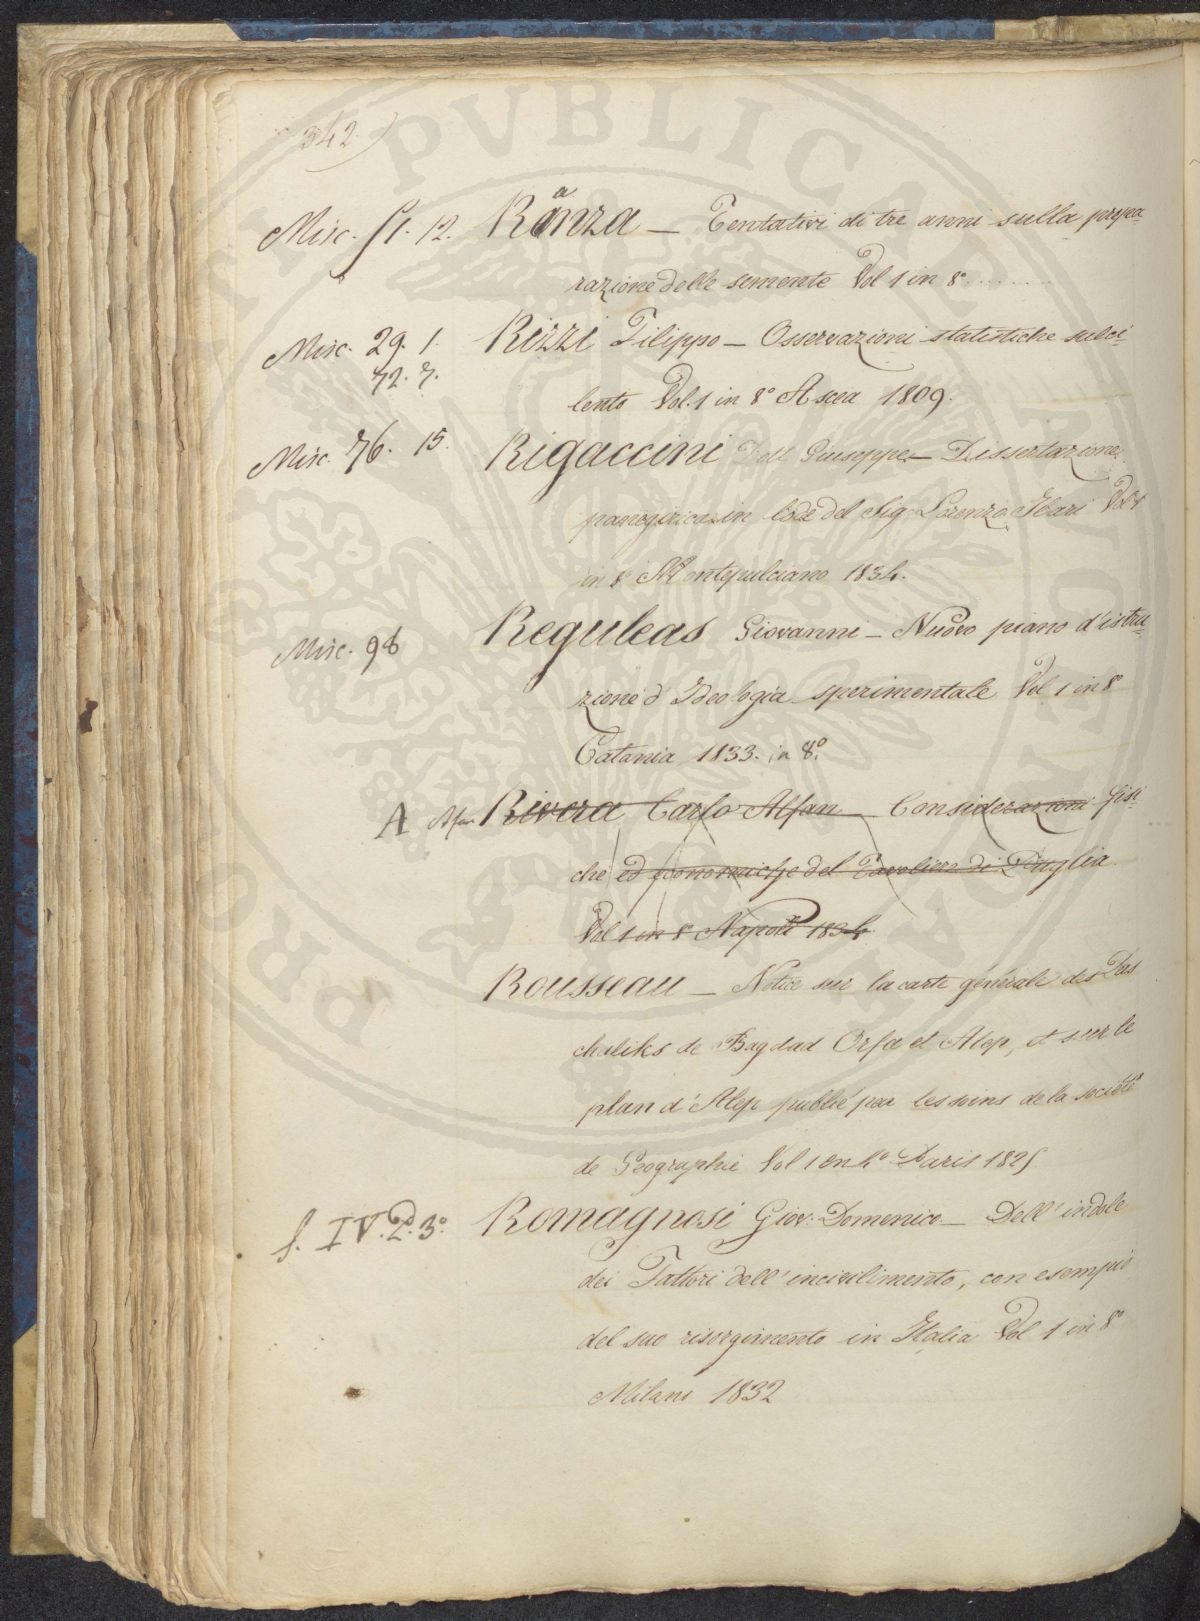 342)
Misc. 51. 12. Ranza — Tentativi di tre anni sulla prepa-
razione delle semente Vol 1 in 8°........
Misc. 29. 1. Rizzi Filippo — Osservazioni statistiche sul ci-
72. 7.
lento Vol. 1 in 8° Ascea 1809.
Misc. 76. 15. Rigaccini Dott Giuseppe — Dissertazione
panegirica in lode del Sig Lorenzo Ilari Vol 1
in 8 Montepulciano 1834.
Misc. 98 Reguleas Giovanni — Nuovo piano d'istru-
zione d Ideologia sperimentale Vol 1 in 8°
Catania 1833. in 8°.
A Afan Rivera Carlo Afan — Considerazioni fisi-
che ed economiche del Tavoliere di Puglia
Vol 1 in 8° Napoli 1834
Rousseau — Notice sur la carte générale des Pas
chaliks de Bagdad Orfa et Alep, et sur le
plan d'Alep publié par les soins de la société
de Geographie Vol 1 en 4° Paris 1825
S. IV. P. 3° Romagnosi Giov: Domenico — Dell'indole
dei Fattori dell'incivilimento, con esempio
del suo risorgimento in Italia Vol 1 in 8°
Milano 1832
PROPRIETÀ PUBLICAE